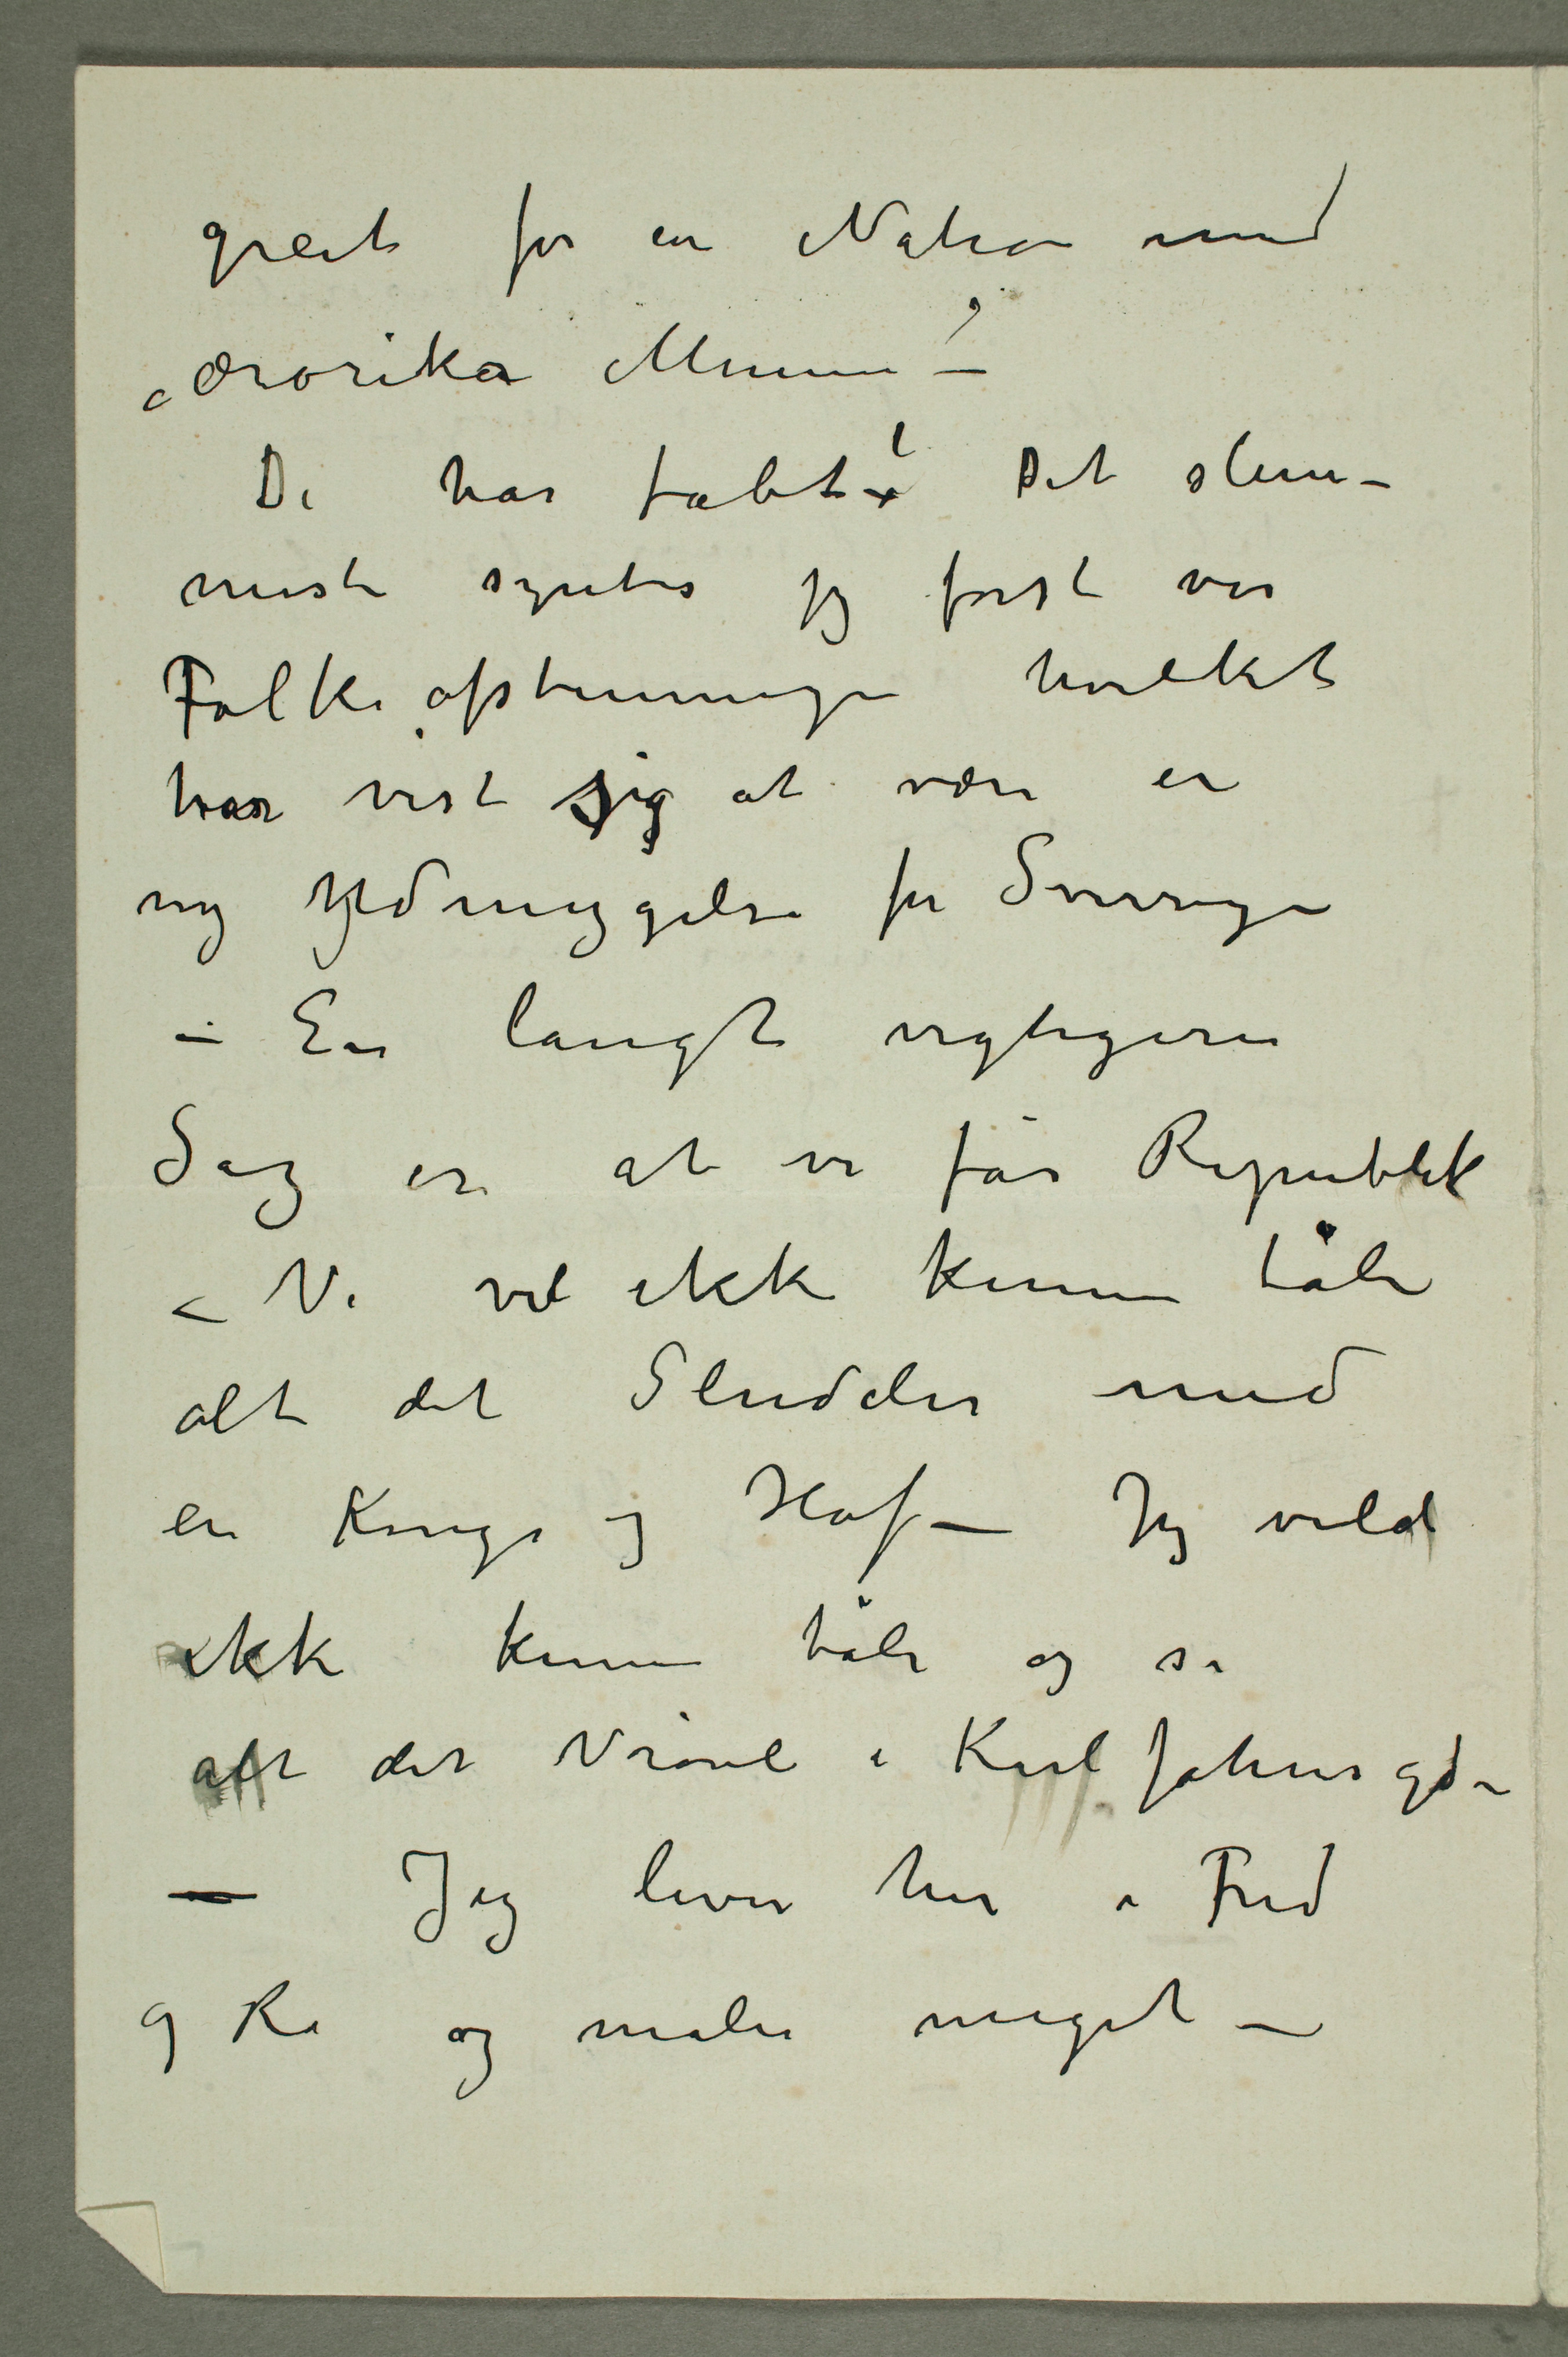 greit for en Nation med
„ærorika Minnen“ –
De har tabt! Det slem-
meste syntes jeg først var
Folkeafstemningen hvilket
har vist sig at være en
ny Ydmygelse for Sverige
– En langt vigtigere
Sag er at vi får Republik
– Vi vil ikke kunne tåle
alt det Sludder med
en Konge og Hof – Jeg vilde
ikke kunne tåle og se
alt det Vrøvl i Karl Johans gd –
– Jeg lever her i Fred
og Ro og maler meget –